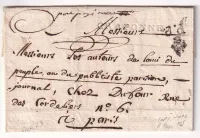 Messieurs
Messieurs Les auteurs de l'ami du
peuple, ou du publiciste parisien,
journal, chez Dufour Rue
des Cordeliers n° 6.
a paris